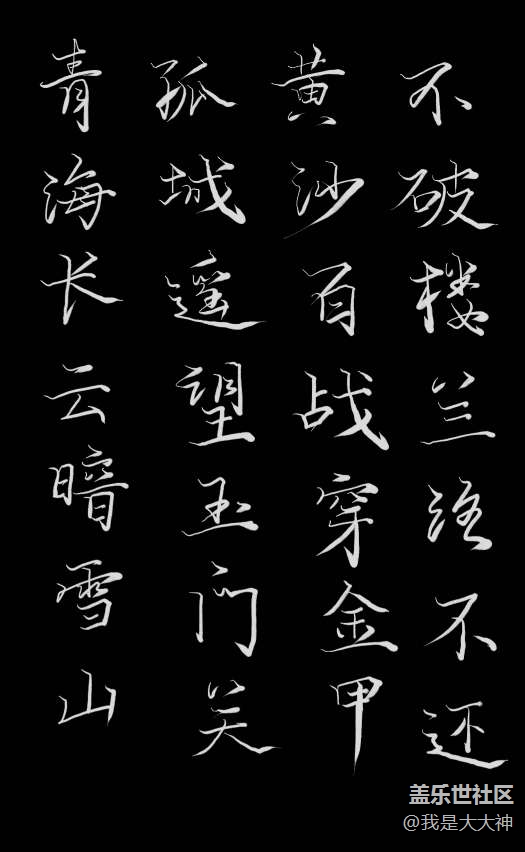 青海长云暗雪山
孤城遥望玉门关
黄沙百战穿金甲
不破楼兰终不还
盖乐世社区
@我是大大神